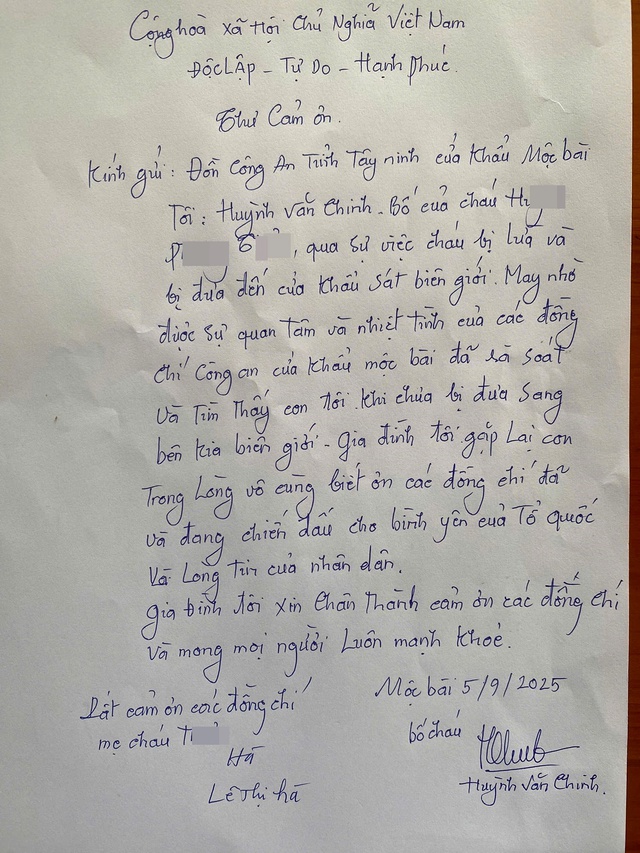 Cộng hoà xã Hội Chủ Nghĩa Việt Nam
ĐộcLập - Tự Do - Hạnh Phúc.
Thư Cảm ơn.
Kính gửi: Đồn Công An Tỉnh Tây ninh cửa Khẩu Mộc bài
Tôi: Huỳnh Văn Chinh - Bố của cháu
, qua sự việc cháu bị lừa và
bị đưa đến cửa Khẩu sát biên giới. May nhờ
được sự quan Tâm và nhiệt Tình của các đồng
chí Công an cửa Khẩu mộc bài đã rà soát
và Tìm Thấy con Tôi khi chưa bị đưa sang
bên kia biên giới - Gia đình tôi gặp Lại con
Trong Lòng vô cùng biết ơn các đồng chí đã
và đang chiến đấu cho bình yên của Tổ quốc
Và Lòng Tin của nhân dân.
Gia đình tôi xin Chân Thành cảm ơn các đồng chí
và mong mọi người Luôn mạnh Khoẻ.
Mộc bài 5/9/2025
Rất cảm ơn các đồng chí
mẹ cháu
bố cháu
Hà
Lê Thị hà
Huỳnh Văn Chinh.